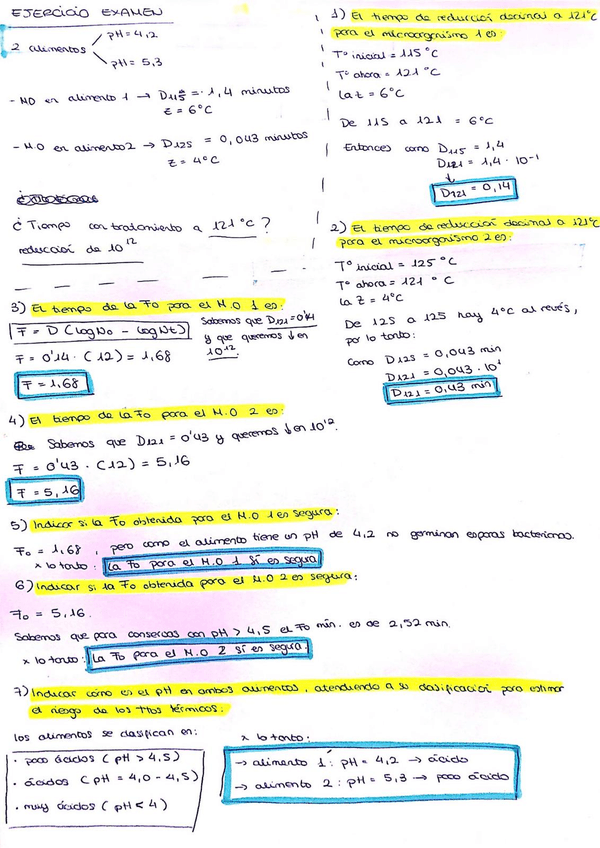 EJERCICIO EXAMEN
2 alimentos
pH = 4,2
pH = 5,3
- MO en alimento 1 → D115 = 1,4 minutos
z = 6°C
- MO en alimento 2 → D125 = 0,043 minutos
z = 4°C
¿ Tiempo con tratamiento a 121°C ?
reducción de 10^12
1) El tiempo de reducción decimal a 121°C
para el microorganismo 1 es:
Tº inicial = 115°C
Tº ahora = 121°C
La z = 6°C
De 115 a 121 = 6°C
Entonces como D115 = 1,4
D121 = 1,4 · 10^-1
↓
D121 = 0,14
2) El tiempo de reducción decimal a 121°C
para el microorganismo 2 es:
Tº inicial = 125°C
Tº ahora = 121°C
La Z = 4°C
De 125 a 125 hay 4°C al revés,
por lo tanto:
Como D125 = 0,043 min
D121 = 0,043 · 10^1
D121 = 0,43 min
3) El tiempo de la Fo para el M.O 1 es:
F = D (log No - log Nt)
Sabemos que D121 = 0'14
y que queremos ↓ en
10^12.
F = 0'14 · (12) = 1,68
F = 1,68
4) El tiempo de la Fo para el M.O 2 es:
Sabemos que D121 = 0'43 y queremos ↓ en 10^12.
F = 0'43 · (12) = 5,16
F = 5,16
5) Indicar si la Fo obtenida para el M.O 1 es segura:
Fo = 1,68 , pero como el alimento tiene un pH de 4,2 no germinan esporas bacterianas.
x lo tanto: La Fo para el M.O 1 sí es segura
6) Indicar si la Fo obtenida para el M.O 2 es segura:
Fo = 5,16.
Sabemos que para conservas con pH > 4,5 el Fo mín. es de 2,52 min.
x lo tanto: La Fo para el M.O 2 sí es segura.
7) Indicar cómo es el pH en ambos alimentos, atendiendo a su clasificación para estimar
el riesgo de los ttos térmicos:
Los alimentos se clasifican en:
· poco ácidos (pH > 4,5)
· ácidos (pH = 4,0 - 4,5)
· muy ácidos (pH < 4)
x lo tanto:
→ alimento 1: pH = 4,2 → ácido
→ alimento 2: pH = 5,3 → poco ácido